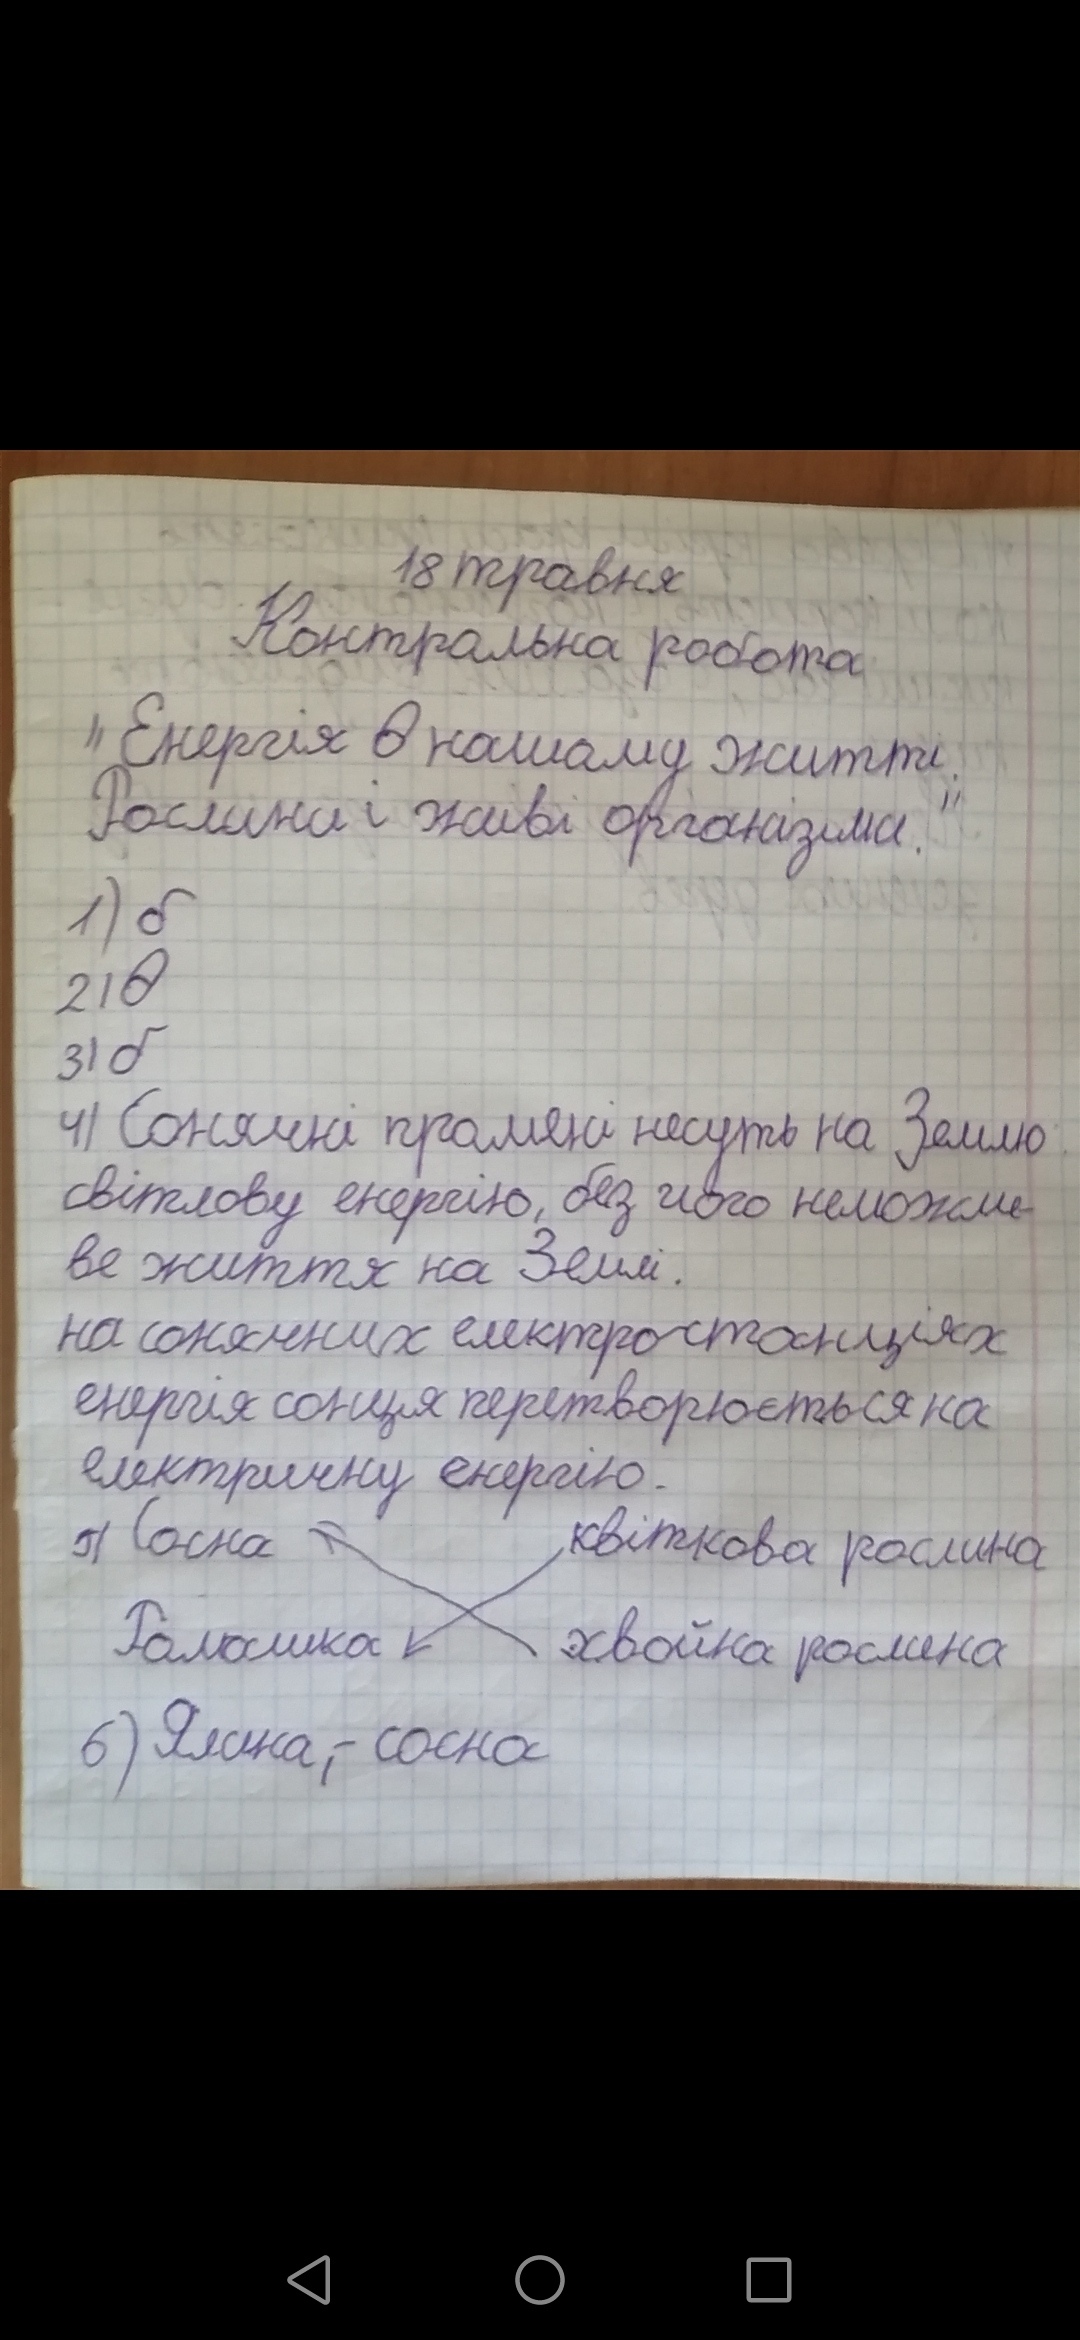 18 травня
Контральна робота
"Енергія в нашаму житті.
Рослини і живі організми."
1) б
2) в
3) б
4) Сонячні промені несуть на Землю
світлову енергію, без його неможли-
ве життя на Землі.
на сонячних електростанціях
енергія сонця перетворюється на
електричну енергію.
5) Сосна квіткова рослина
Ромашка хвойна рослина
6) Ялина, - сосна